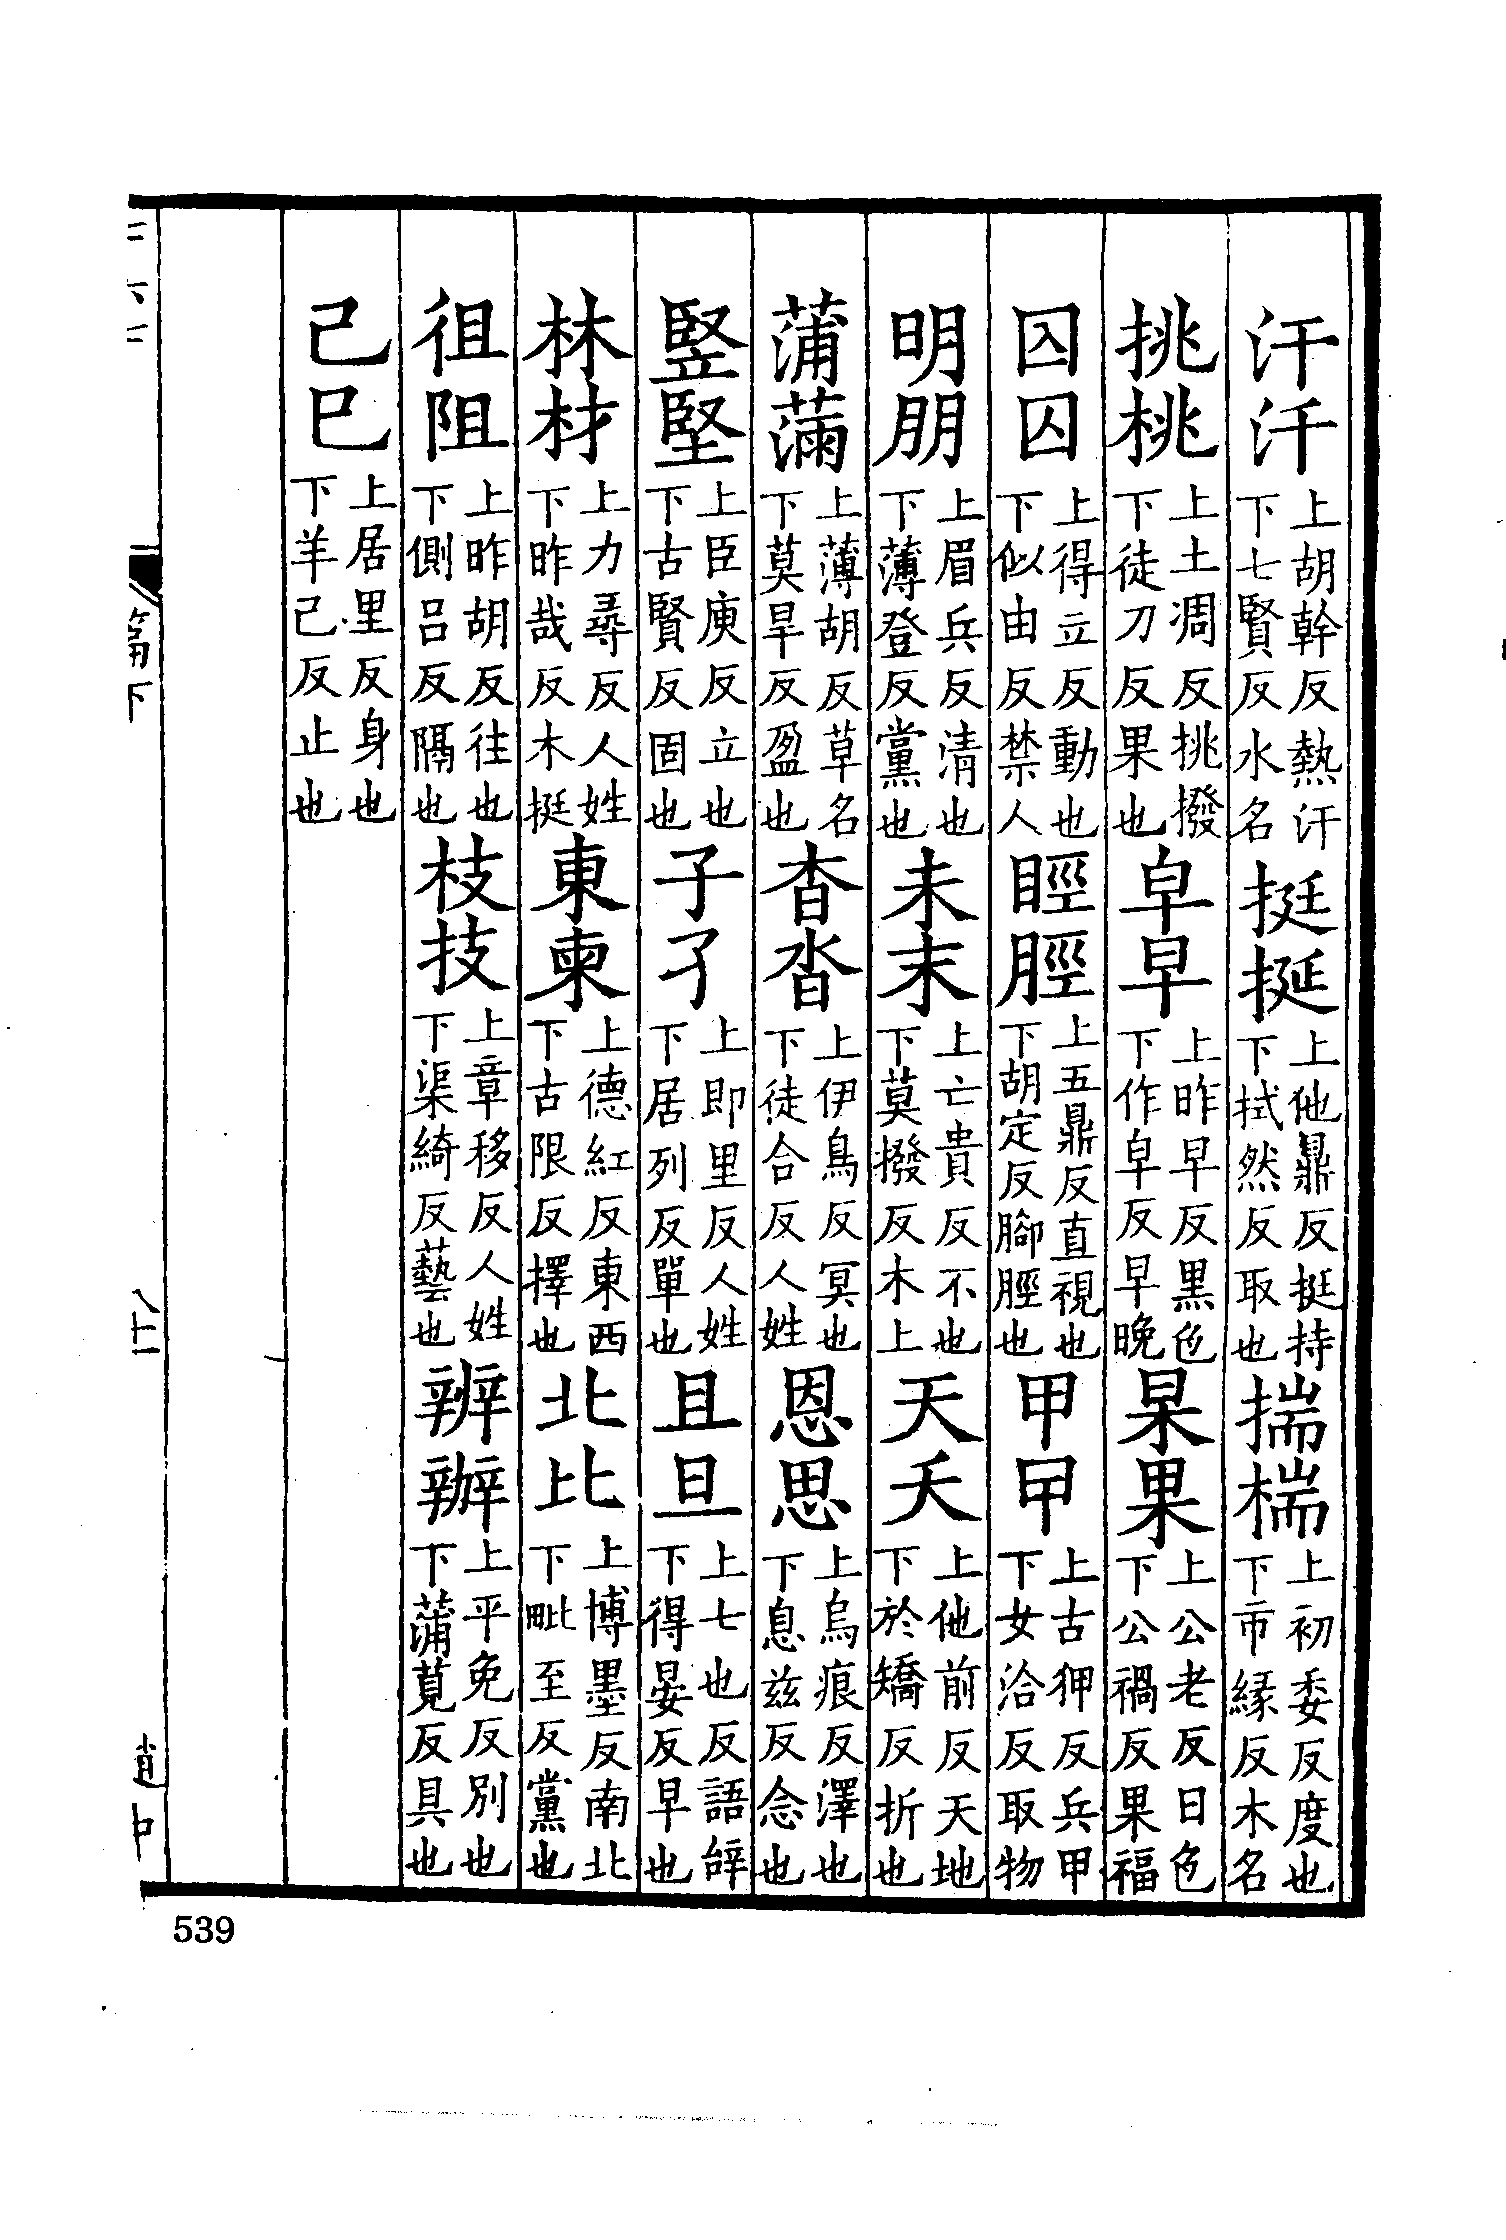 汗汘上胡幹反熱汗下七賢反水名挺挻上他鼎反挺持下拭然反取也揣椯上初委反度也下市緣反木名
挑桃上土凋反挑撥下徒刀反果也皁早上昨早反黑色下作皁反早晚杲果上公老反日色下公禍反果福
囚上得立反動也下似由反禁人脛上五鼎反直視也下胡定反腳脛也甲曱上古狎反兵甲下女洽反取物
明朋上眉兵反清也下薄登反黨也未末上亡貴反不也下莫撥反木上天夭上他前反天地下於矯反折也
蒲上薄胡反草名下莫旱反盈也杳沓上伊鳥反冥也下徒合反人姓恩思上烏痕反澤也下息茲反念也
竪堅上臣庾反立也下古賢反固也子孑上即里反人姓下居列反單也且旦上七也反語辝下得晏反早也
林材上力尋反人姓下昨哉反木挺東柬上德紅反東西下古限反擇也北比上博墨反南北下毗至反黨也
徂阻上昨胡反往也下側呂反隔也枝技上章移反人姓下渠綺反藝也辨辦上平免反別也下蒲莧反具也
己巳上居里反身也下羊己反止也
篇下
八十一
539